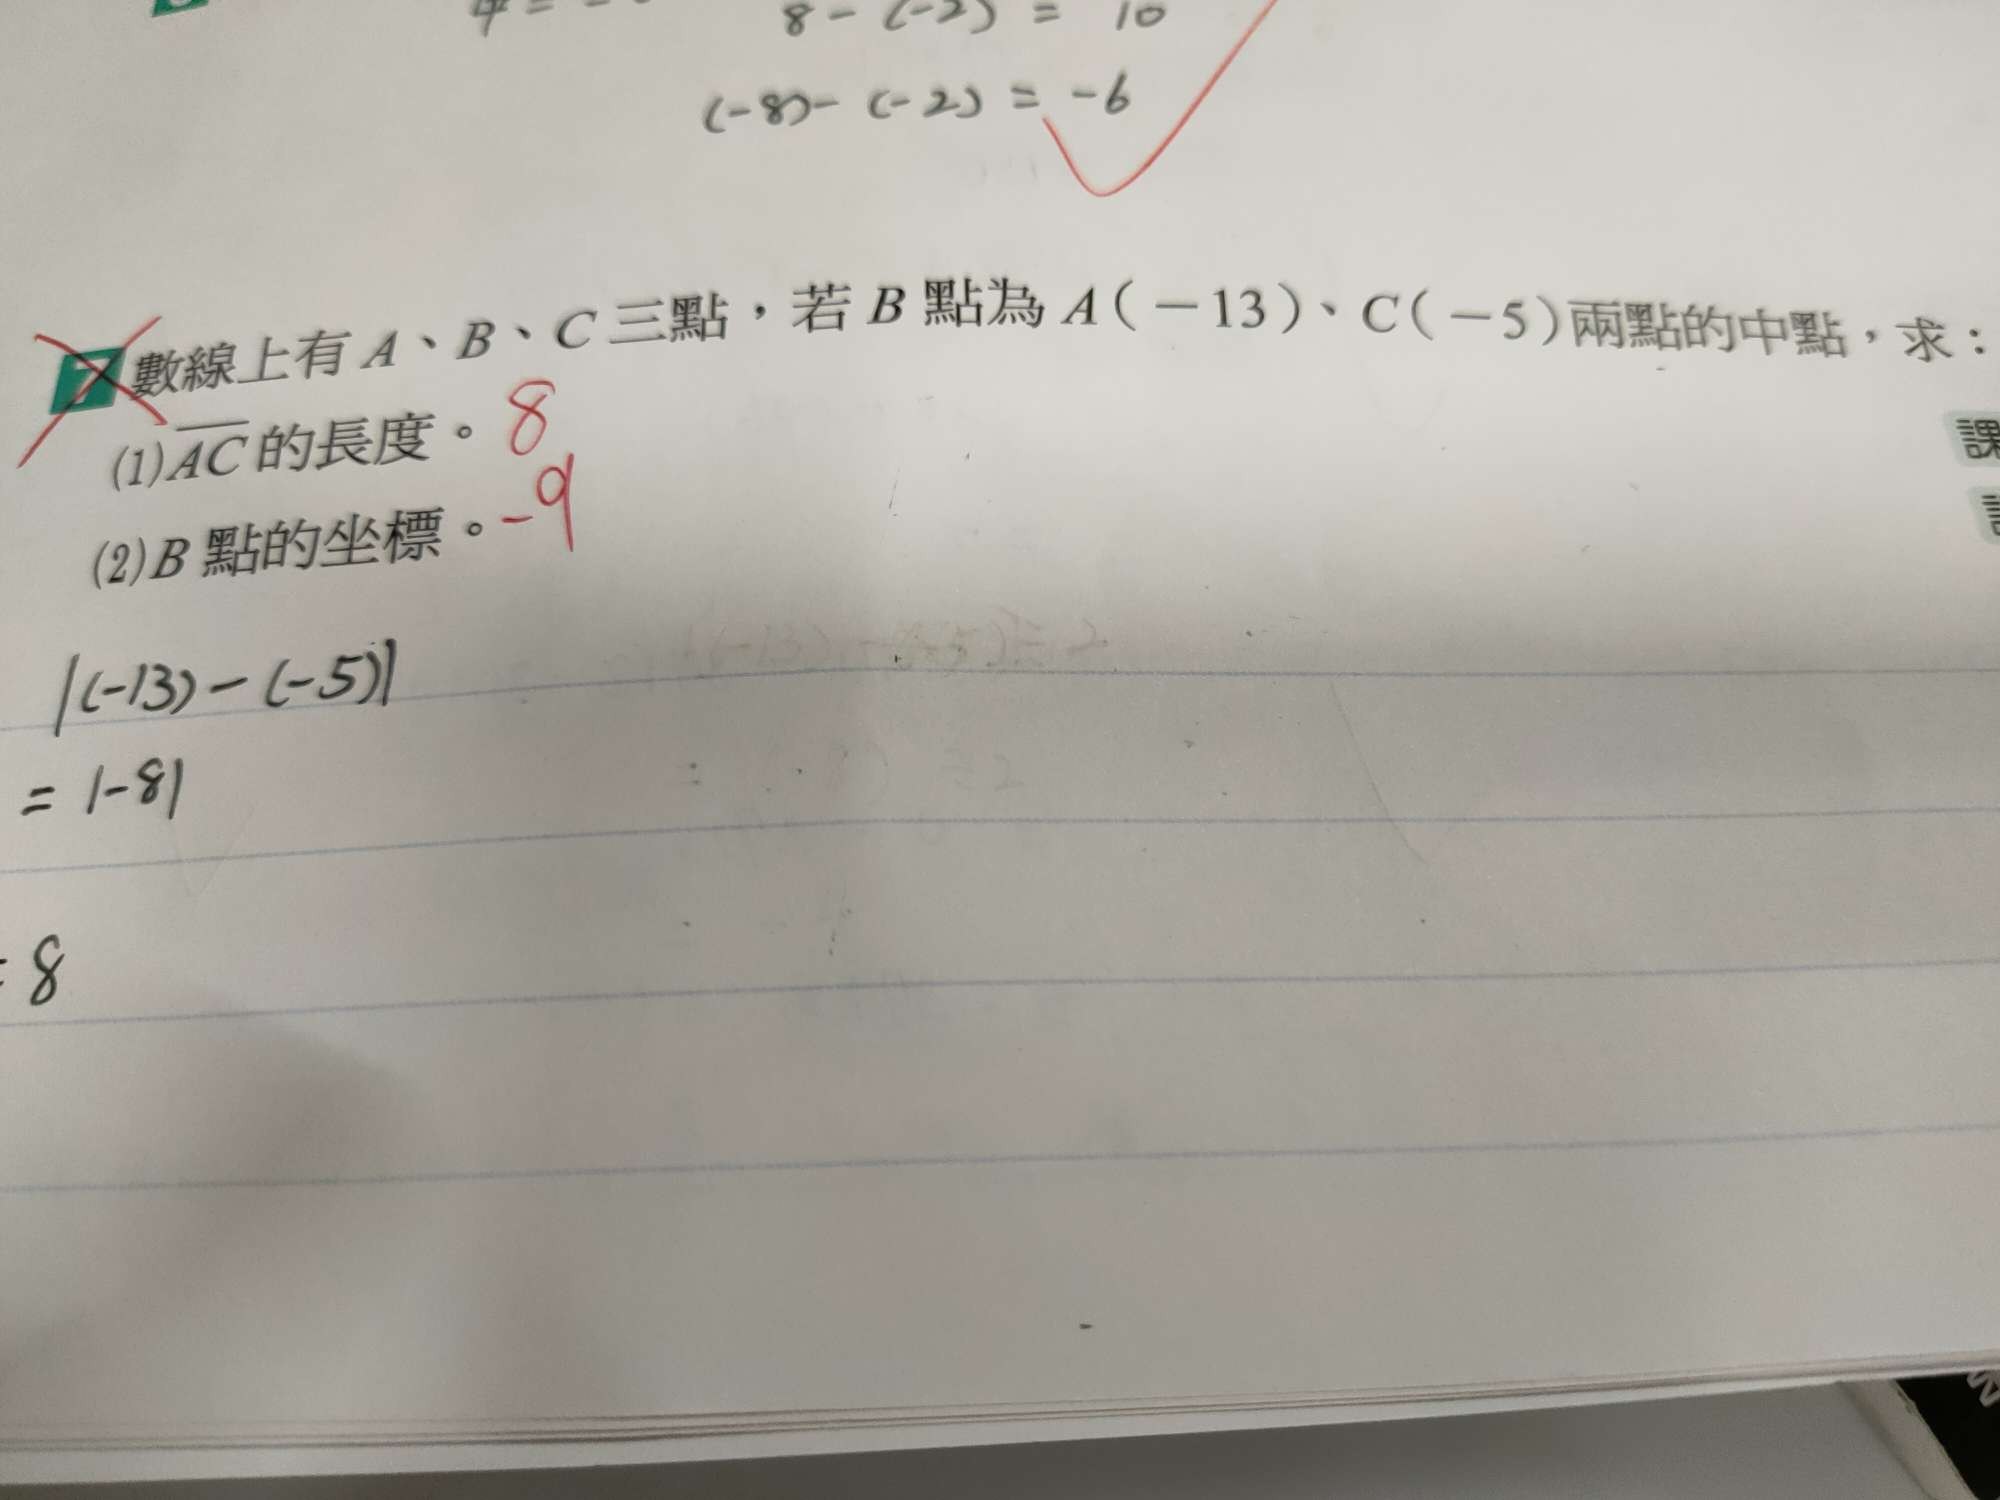 8-(-2) = 10
(-8)-(-2) = -6
7 數線上有 A、B、C 三點，若 B 點為 A(-13)、C(-5)兩點的中點，求：
(1)AC 的長度。 8
(2)B 點的坐標。 -9
|(-13)-(-5)|
= |-8|
= 8